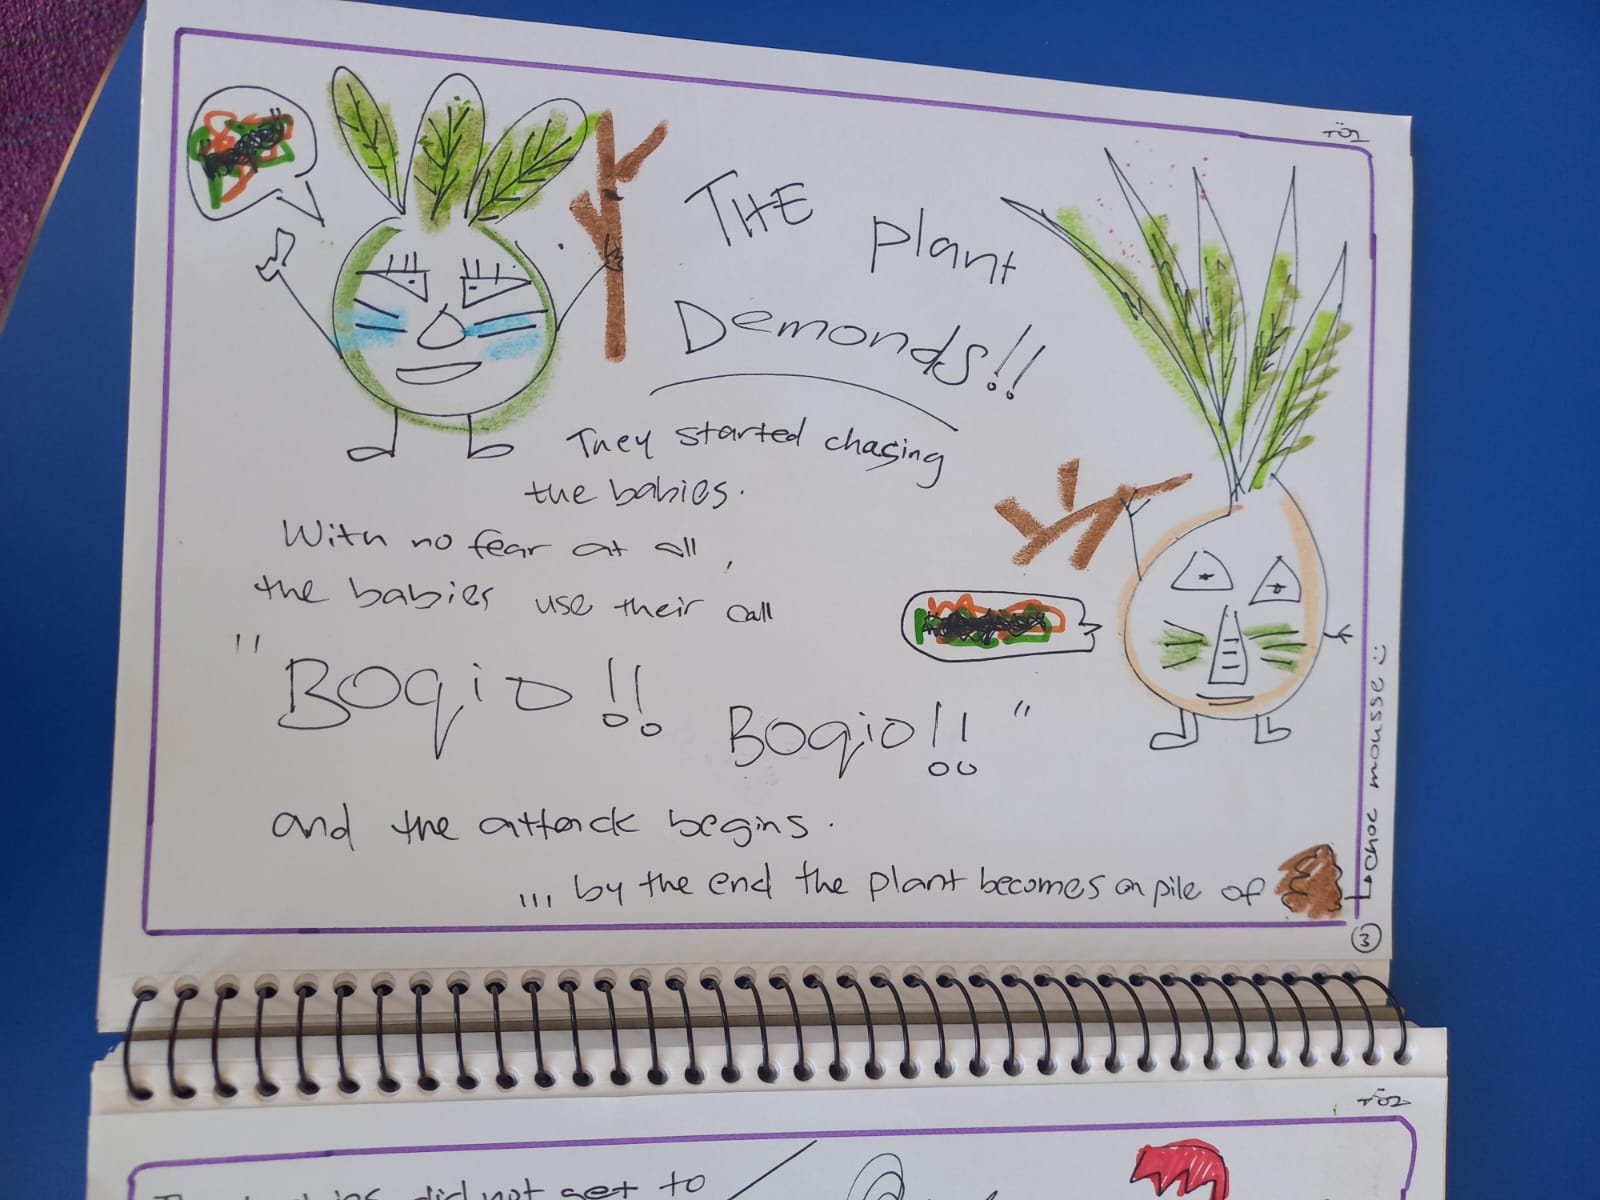 THE plant
Demonds!!
They started chasing
the babies.
With no fear at all,
the babies use their call
"BOqio!! BOqio!!"
and the attack begins.
... by the end the plant becomes on pile of
↳ choc mousse :)
3
did not get to